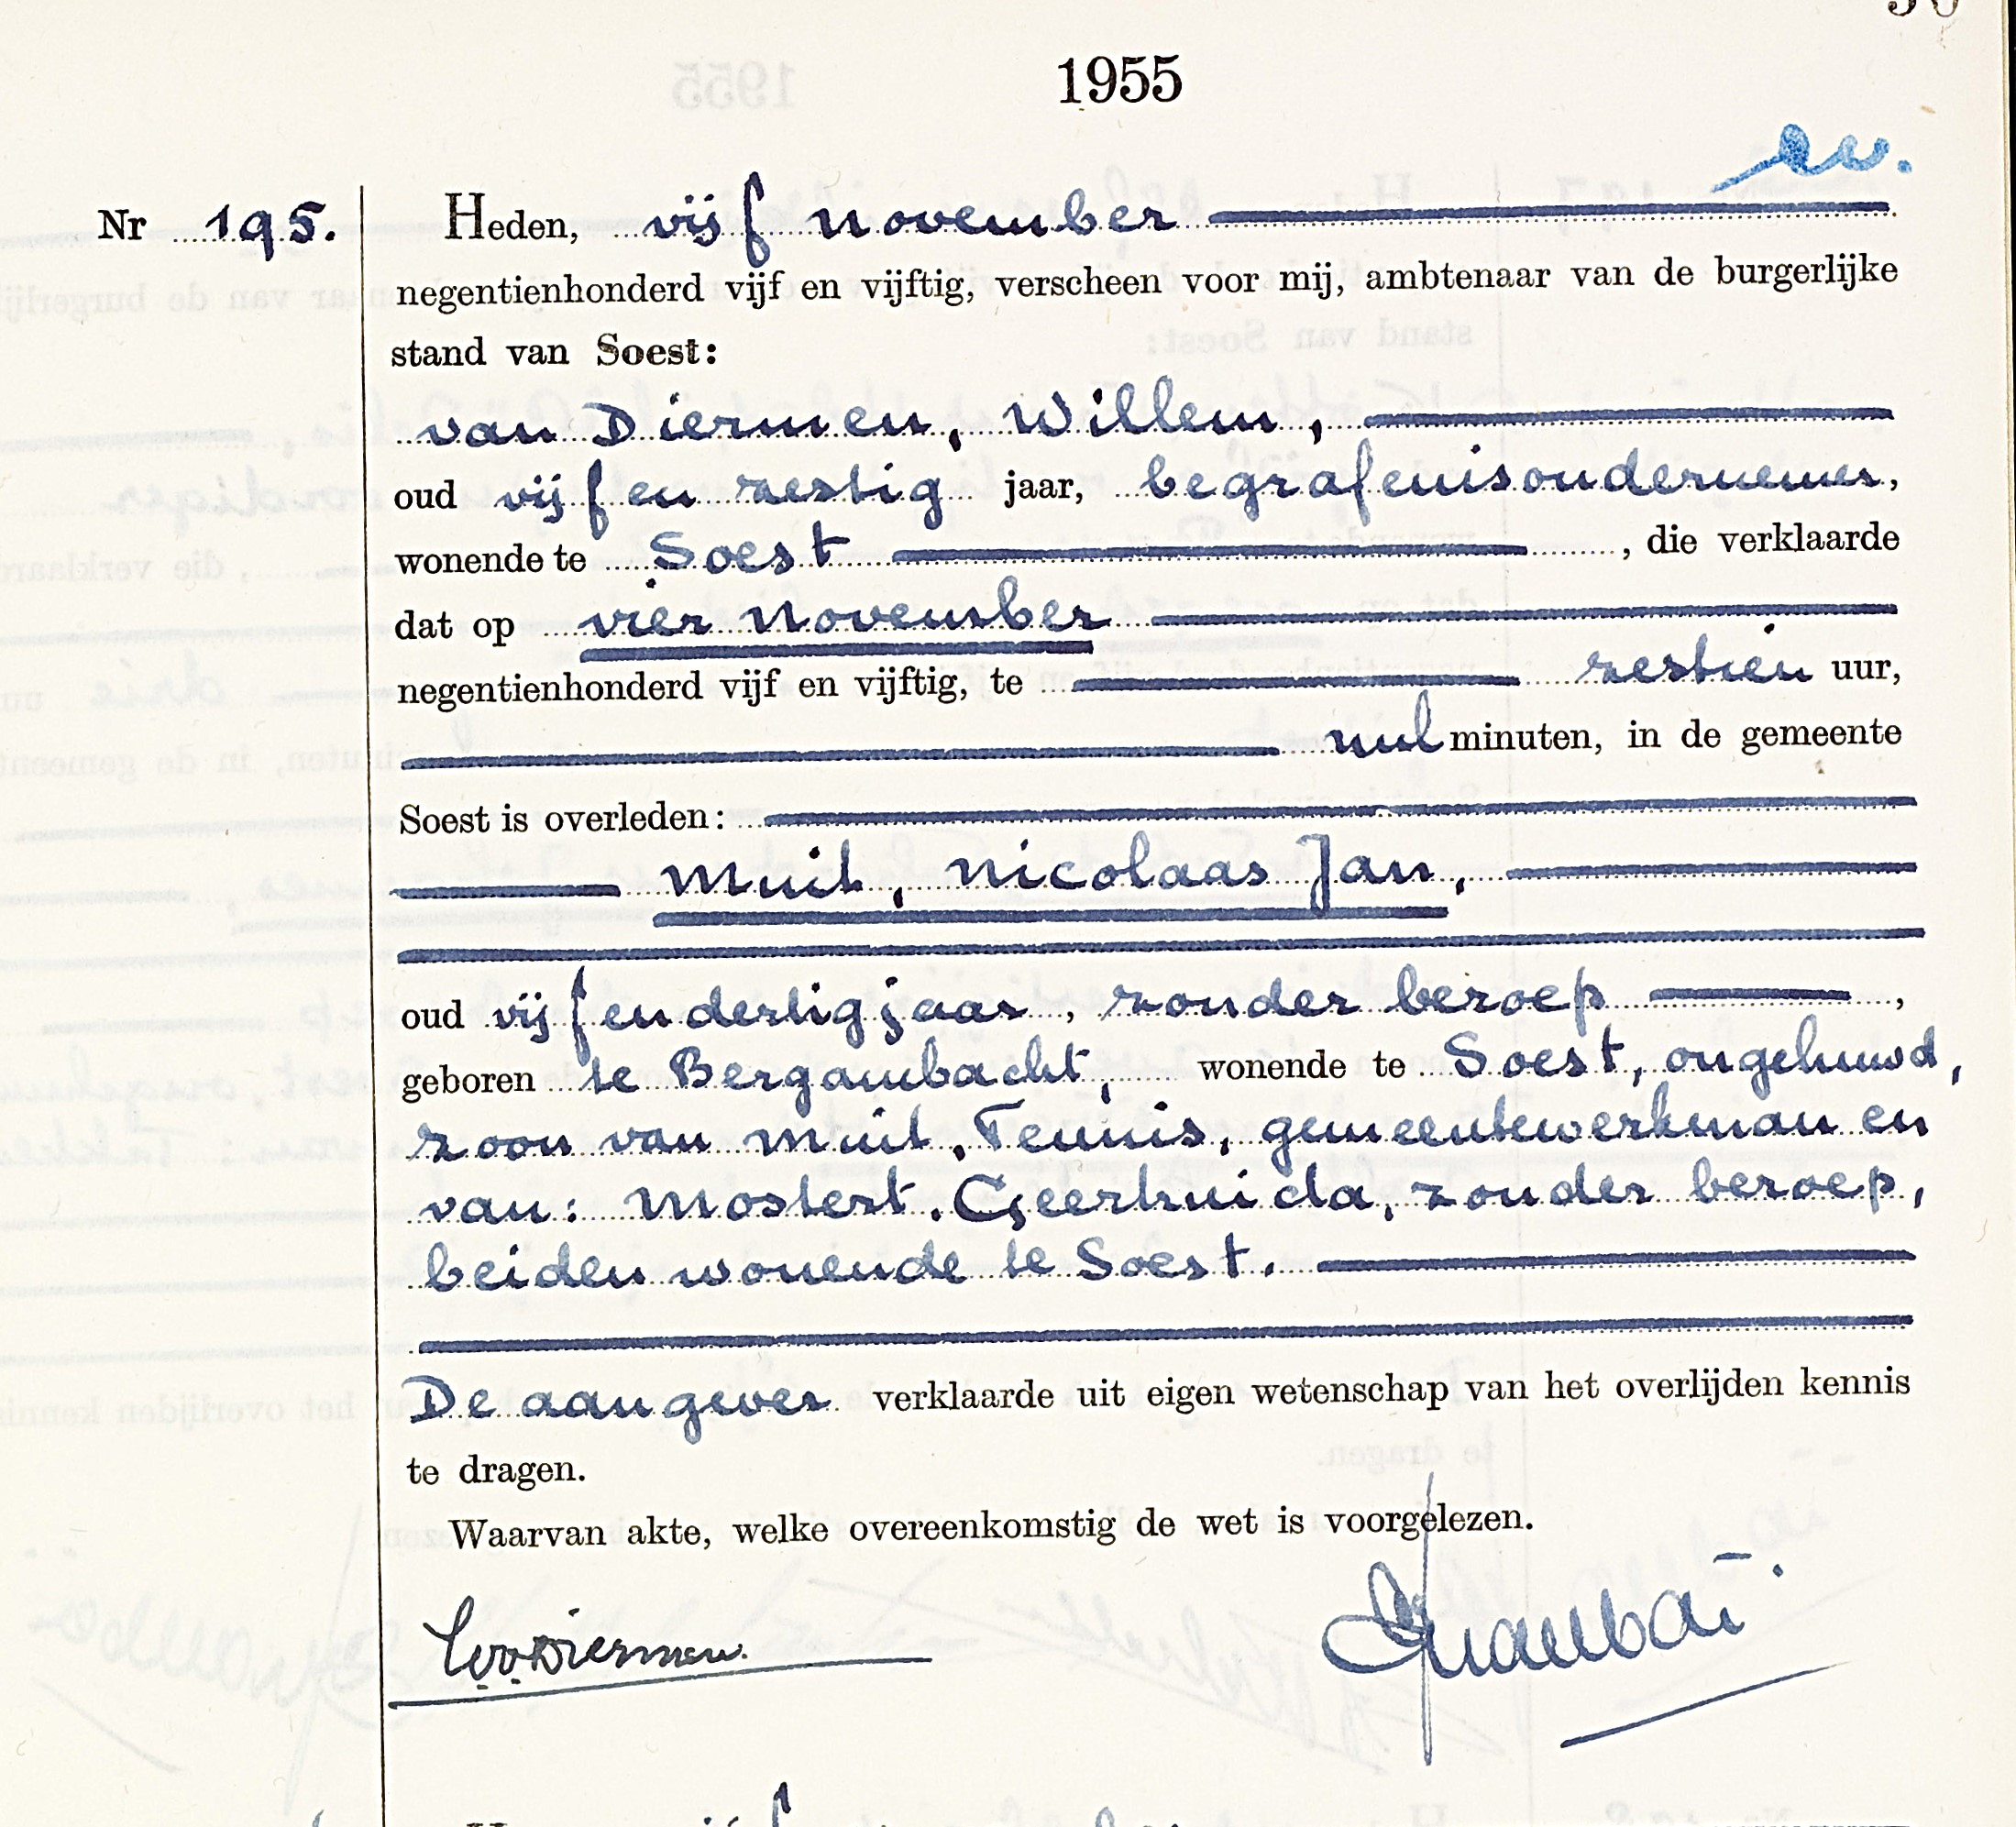 1955
Nr 195. Heden, vijf november
negentienhonderd vijf en vijftig, verscheen voor mij, ambtenaar van de burgerlijke
stand van Soest:
van Diermen, Willem,
oud vijf en zestig jaar, begrafenisondernemer,
wonende te Soest, die verklaarde
dat op vier november
negentienhonderd vijf en vijftig, te zestien uur,
nul minuten, in de gemeente
Soest is overleden:
Muit, Nicolaas Jan,
oud vijf en dertig jaar, zonder beroep,
geboren te Bergambacht, wonende te Soest, ongehuwd,
zoon van Muit, Teunis, gemeentewerkman en
van: Mostert, Geertruida, zonder beroep,
beiden wonende te Soest.
De aangever verklaarde uit eigen wetenschap van het overlijden kennis
te dragen.
Waarvan akte, welke overeenkomstig de wet is voorgelezen.
WvDiermen.